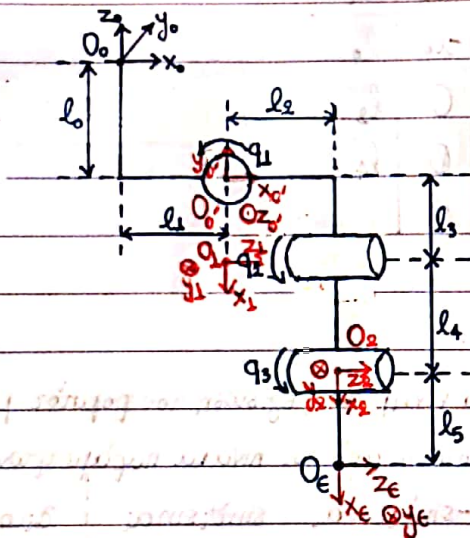 z₀
y₀
O₀
x₀
l₀
l₂
q₁
y₀'
x₀'
O₀'
z₀'
l₁
l₃
O₁
z₁
q₂
y₁
x₁
l₄
O₂
q₃
z₂
y₂
x₂
l₅
O_E
z_E
x_E
y_E